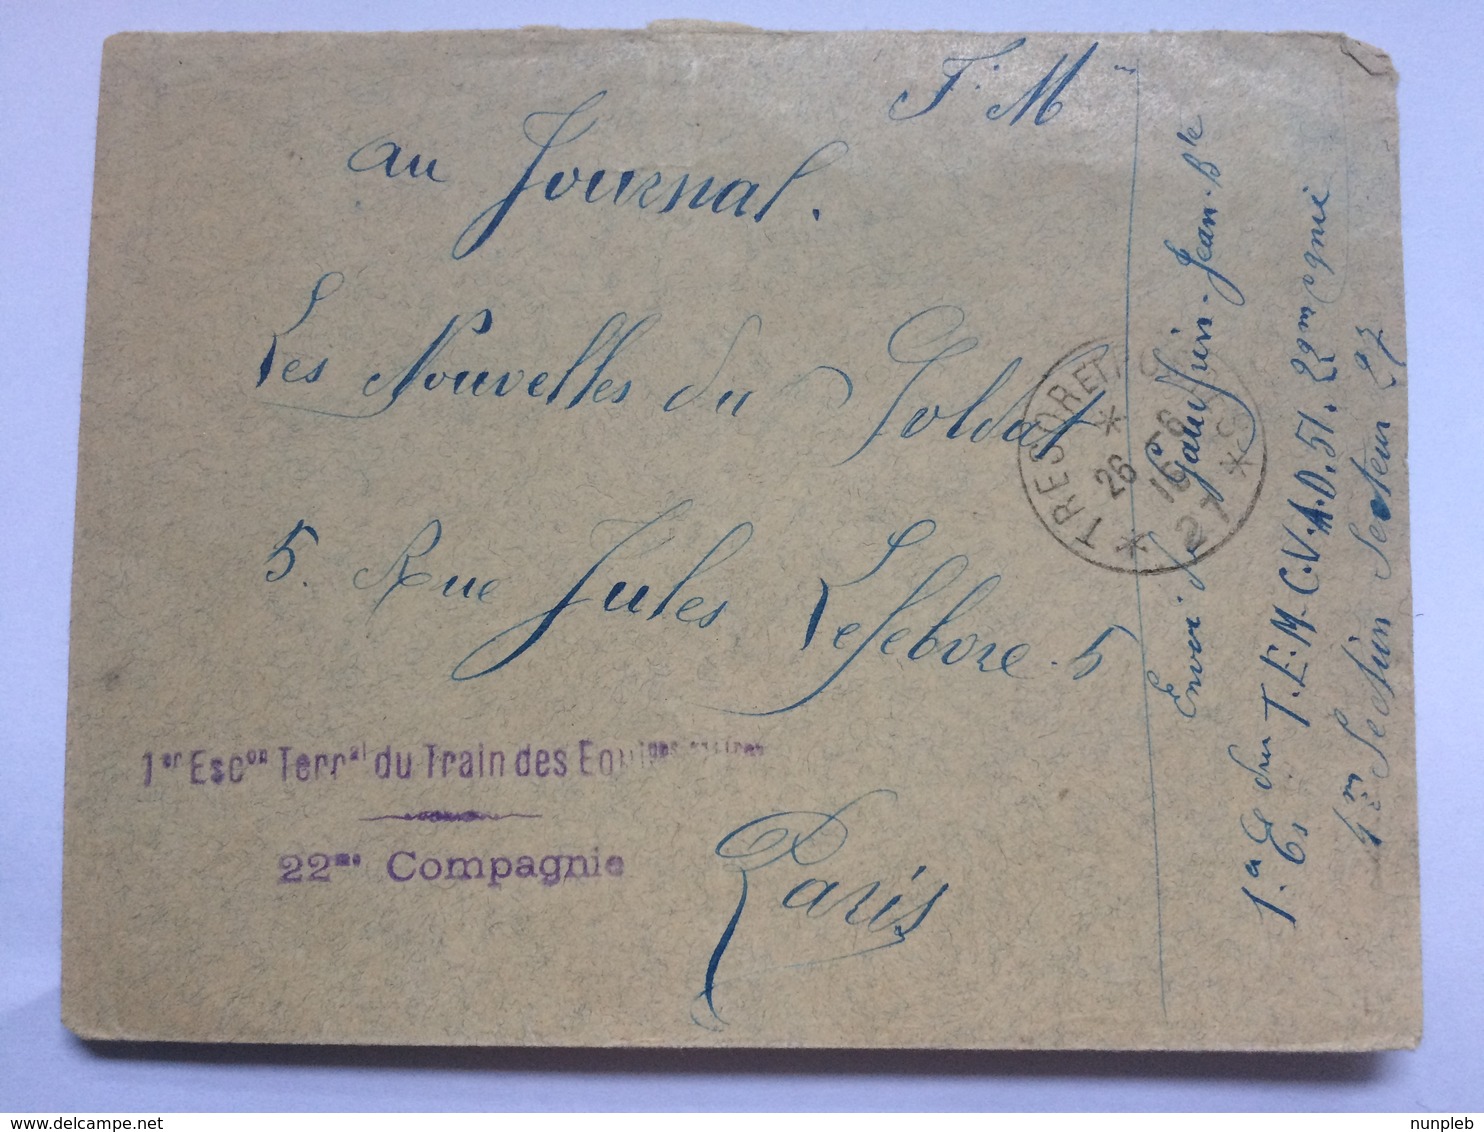 F. M
au Journal.
Les Nouvelles du Soldat
5. Rue Jules Lefebvre. 5
Paris
1er Escon Terral du Train des Equipages
22me Compagnie
TRESOR ET POSTES
* 27 *
26 - 6
16
Envoi de Jean-Bte
1.er E. du T.E.M. C.V.A.D. 51. 22me Cgnie
4me Section Secteur 27
nunpleb